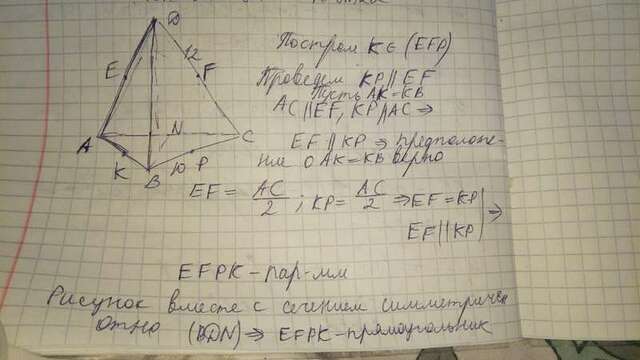 D
12
E
F
A
N
C
K
B
10
P
Построим K ∈ (EFP)
Проведем KP || EF
Пусть AK = KB
AC || EF, KP || AC ⇒
EF || KP ⇒ предположе-
ние о AK = KB верно
EF = AC/2 ; KP = AC/2 ⇒ EF = KP
EF || KP ⇒
EFPK - пар-мм
Рисунок вместе с сечением симметричен
отно (BDN) ⇒ EFPK - прямоугольник